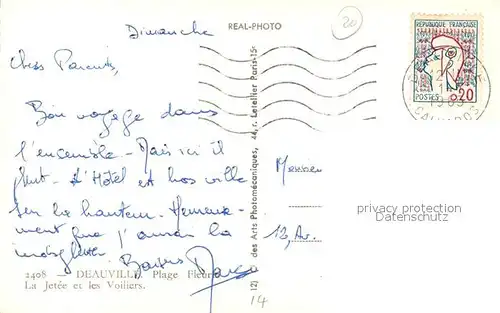 Dimanche
REAL-PHOTO
20
REPUBLIQUE FRANÇAISE
POSTES 0,20
CALVADOS
Chers Parents,
Bon voyage dans
l'ensemble - Mais ici il
pleut - L'Hôtel est hors ville
sur la hauteur - Heureuse-
ment que j'aurai la
Baisers
des Arts Photomécaniques, 44, r. Letellier Paris-15e
12, Av.
privacy protection
Datenschutz
2408 — DEAUVILLE. Plage Fleurie
La Jetée et les Voiliers.
14